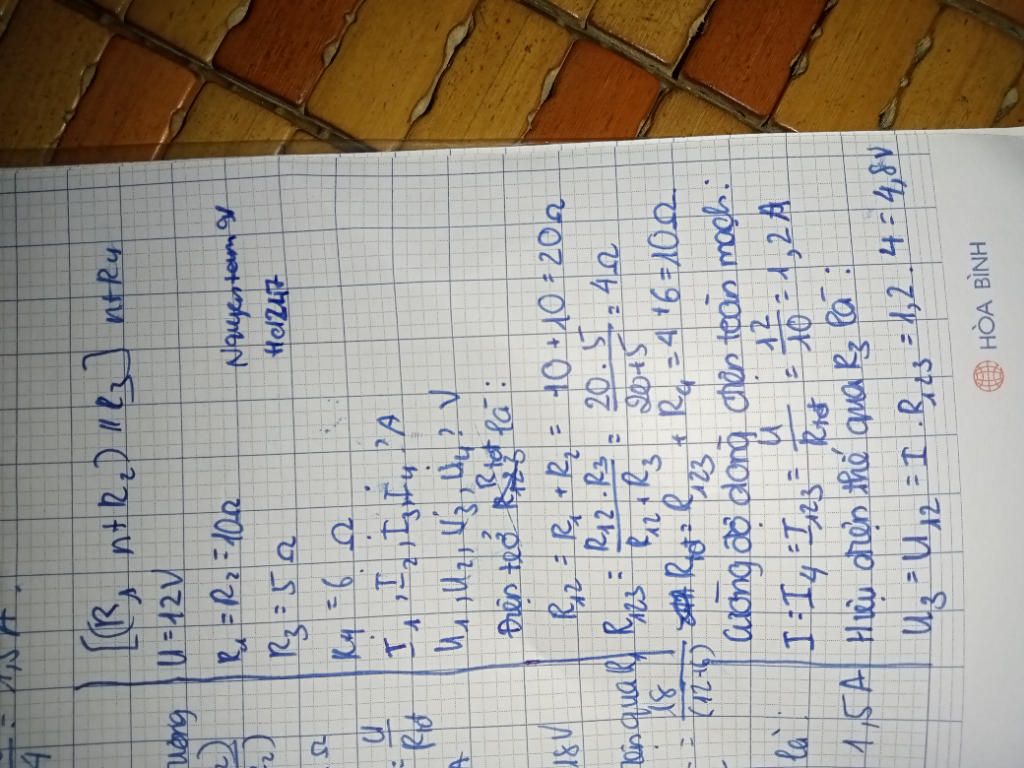 1,5A.
4
[(R1 nt R2) // R3] nt R4
U = 12V
R1 = R2 = 10Ω
R3 = 5 Ω
R4 = 6 Ω
I1, I2, I3, I4 ? A
U1, U2, U3, U4 ? V
Rtđ là:
R12 = R1 + R2 = 10 + 10 = 20Ω
R123 = R12 . R3 / R12 + R3 = 20 . 5 / 20 + 5 = 4Ω
Rtđ = R123 + R4 = 4 + 6 = 10Ω
Cường độ dòng điện toàn mạch:
I = I4 = I123 = U / Rtđ = 12 / 10 = 1,2A
Hiệu điện thế qua R3 là:
U3 = U12 = I . R123 = 1,2 . 4 = 4,8V
Ω
U
Rtđ
A
18V
18
là:
1,5A
HÒA BÌNH